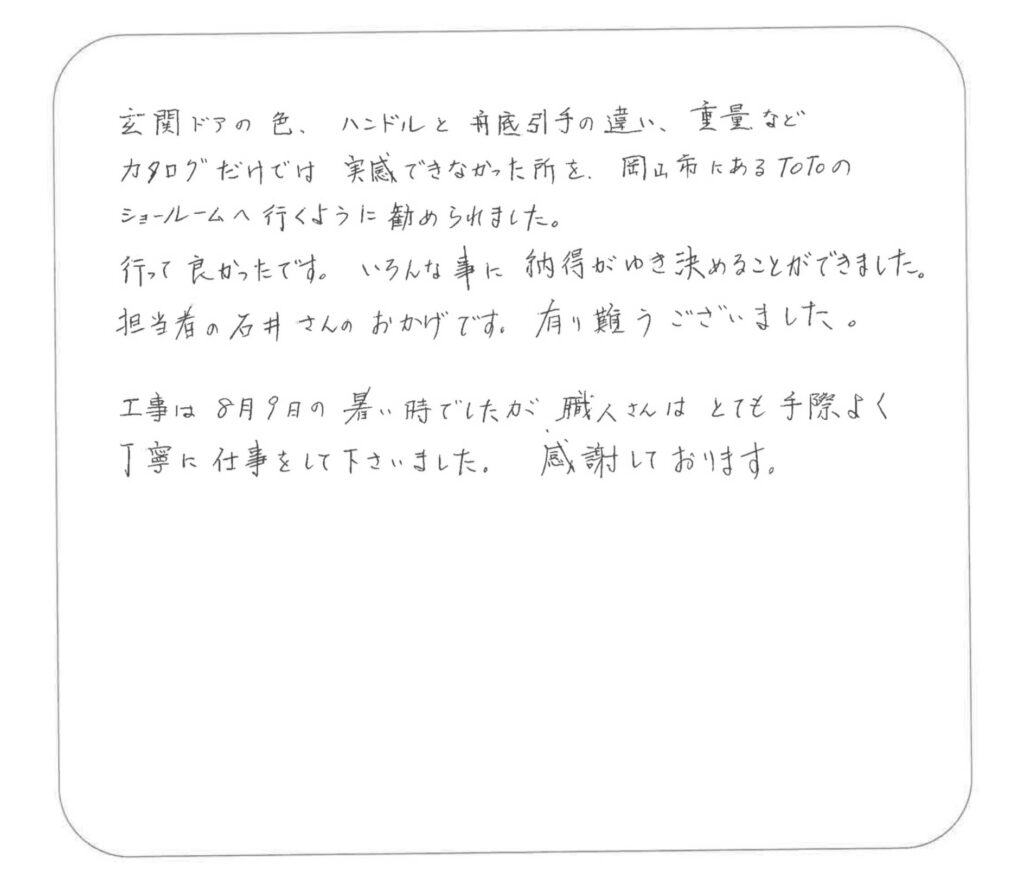 玄関ドアの色、ハンドルと舟底引手の違い、重量など
カタログだけでは実感できなかった所を、岡山市にあるTOTOの
ショールームへ行くように勧められました。
行って良かったです。いろんな事に納得がゆき決めることができました。
担当者の石井さんのおかげです。有り難うございました。
工事は8月9日の暑い時でしたが職人さんはとても手際よく
丁寧に仕事をして下さいました。感謝しております。